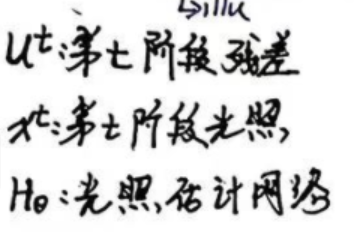 u^t:第t阶段残差
x^t:第t阶段光照,
H_θ:光照估计网络